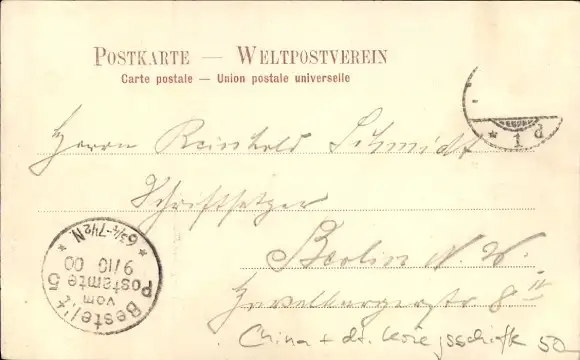 POSTKARTE — WELTPOSTVEREIN
Carte postale — Union postale universelle
* 1 d
Herrn Reinhold Schmidt
Schriftsetzer
Berlin N. W.
8 II
Bestellt
vom
Postamte 5
9/10 00
* 6¾-7½N *
China + dt. Kriegsschiffe 50